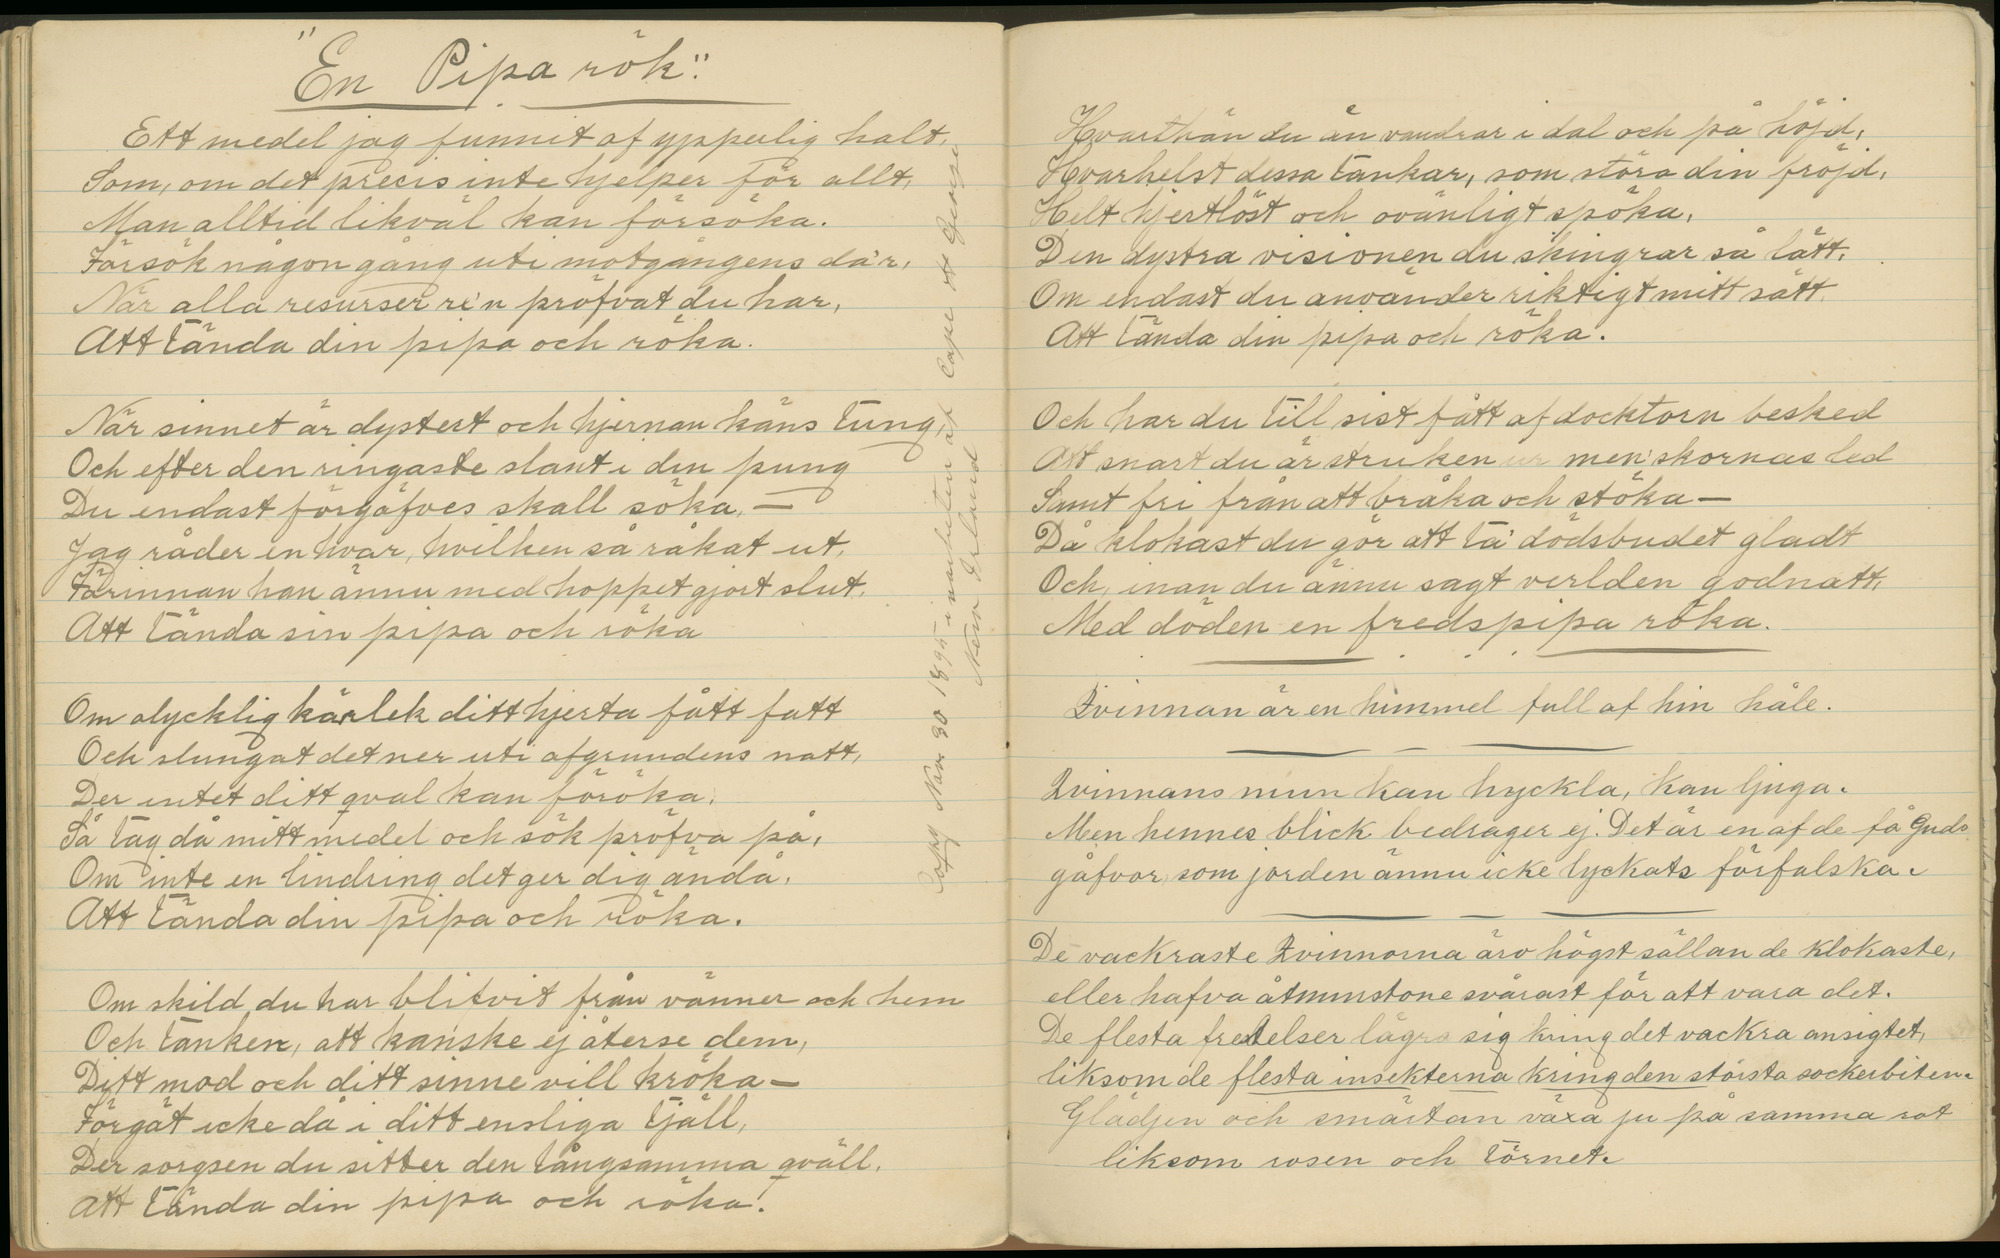 "En Pipa rök".
Ett medel jag funnit af ypperlig halt,
Som, om det precis inte hjelper för allt,
Man alltid likväl kan försöka.
Försök någon gång uti motgångens da'r,
När alla resurser re'n pröfvat du har,
Att tända din pipa och röka.
När sinnet är dystert och hjernan käns tung,
Och efter den ringaste slant i din pung
Du endast förgäfves skall söka, —
Jag råder en hvar, hvilken så råkat ut,
Förinnan han ännu med hoppet gjort slut,
Att tända sin pipa och röka
Om olycklig kärlek ditt hjerta fått fatt
Och slungat det ner uti afgrundens natt,
Der intet ditt qval kan föröka,
Så tag då mitt medel och sök pröfva på,
Om inte en lindring det ger dig ändå,
Att tända din pipa och röka.
Om skild du har blifvit från vänner och hem
Och tanken, att kanske ej återse dem,
Ditt mod och ditt sinne vill kröka —
Förgät icke då i ditt ensliga tjäll,
Der sorgsen du sitter den långsamma qväll,
Att tända din pipa och röka!
Copy Nov 30 1895 i närheten af Cape St George
New Irland
Hvarthän du än vandrar i dal och på höjd,
Hvarhelst dessa tankar, som störa din fröjd,
Helt hjertlöst och ovänligt spöka,
Den dystra visionen du skingrar så lätt,
Om endast du använder riktigt mitt sätt
Att tända din pipa och röka.
Och har du till sist fått af docktorn besked
Att snart du är struken ur men'skornas led
Samt fri från att bråka och stöka —
Då klokast du gör att ta' dödsbudet gladt
Och, inan du ännu sagt verlden godnatt,
Med döden en fredspipa röka.
Qvinnan är en himmel full af hin håle.
Qvinnans mun kan hyckla, kan ljuga.
Men hennes blick bedrager ej. Det är en af de få Guds
gåfvor, som jorden ännu icke lyckats förfalska.
De vackraste Qvinnorna äro högst sällan de klokaste,
eller hafva åtminstone svårast för att vara det.
De flesta frestelser lägra sig kring det vackra ansigtet,
liksom de flesta insekterna kring den största sockerbiten.
Glädjen och smärtan växa ju på samma rot
liksom rosen och törnet.